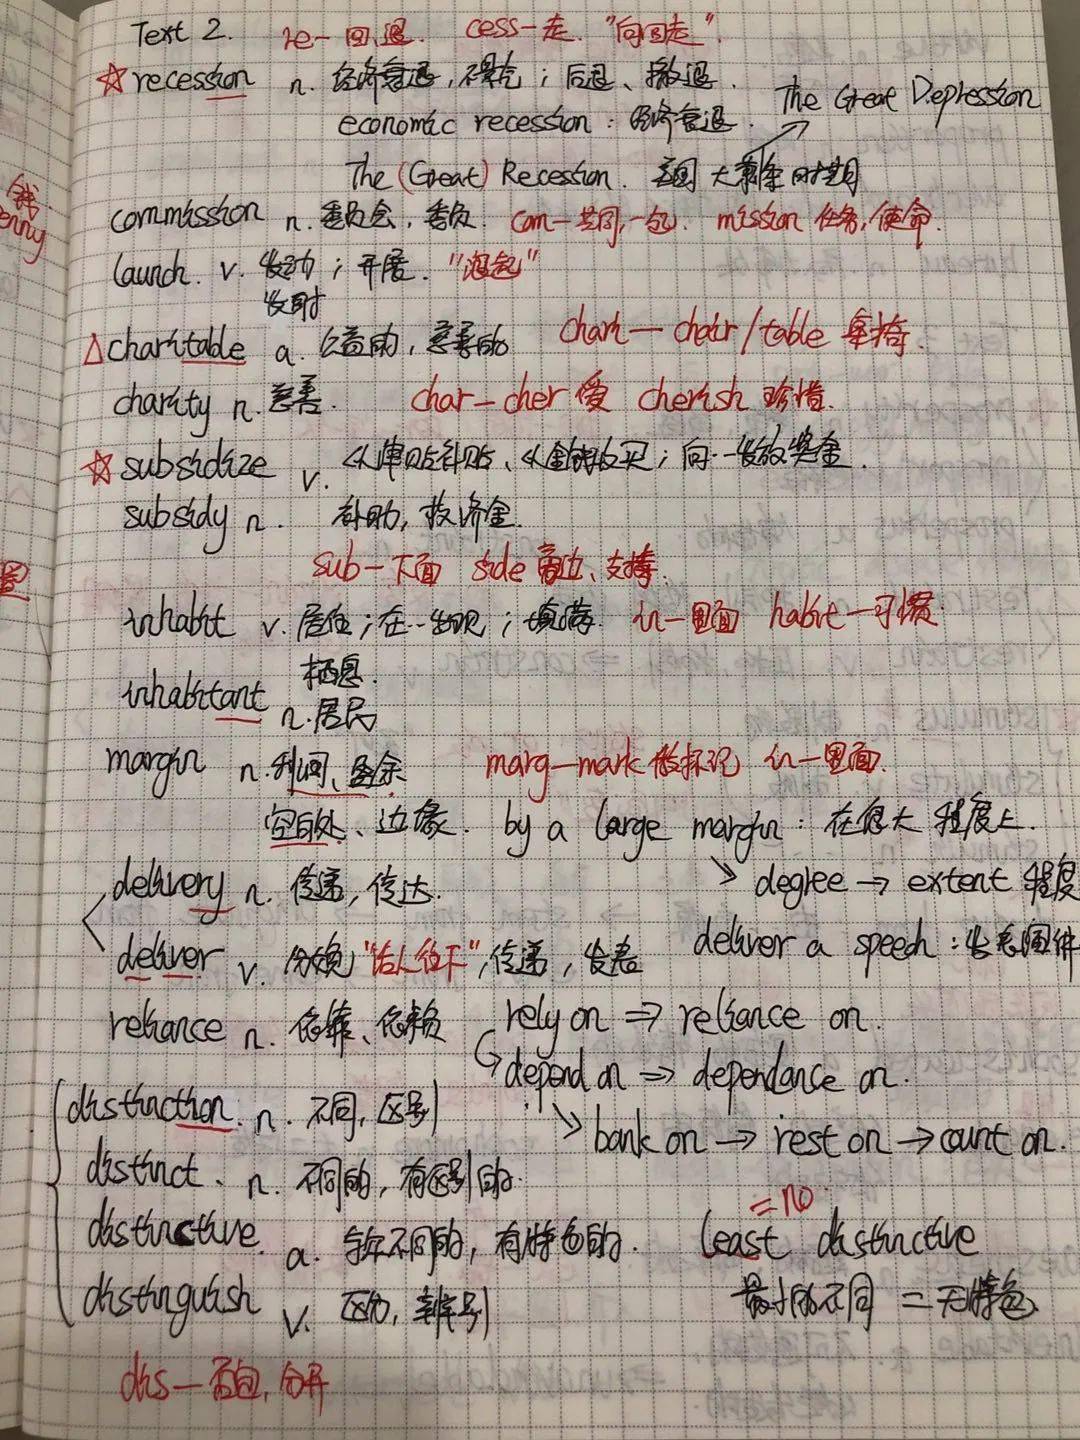 Text 2. re- 回,退. cess-走. "向回走".
☆recession n. 经济衰退,不景气;后退、撤退.
economic recession:经济衰退. The Great Depression
The (Great) Recession. 美国大萧条时期
commission n. 委员会,委员. com-共同,一起. mission 任务,使命.
launch. v. 发动;开展. "浪起"
发射
△charitable a. 公益的,慈善的 chari—chair/table 桌椅.
charity n. 慈善. char-cher 爱 cherish 珍惜.
☆subsidize v. 以津贴补贴、以金钱收买;向…发放奖金.
subsidy n. 补助,救济金.
sub-下面 side 旁边、支撑.
inhabit v. 居住;在…出现;填满. in-里面 habit-习惯.
栖息.
inhabitant n.居民
margin n.利润、盈余. marg-mark 做标记 in-里面.
空白处、边缘. by a large margin:在很大程度上.
delivery n. 传递,传达. degree → extent 程度
deliver v. 分娩 "往下",传递,发表 deliver a speech:
reliance n. 依靠、依赖 rely on ⇒ reliance on.
depend on ⇒ dependance on.
distinction. n. 不同,区别
bank on → rest on → count on.
distinct. n. 不同的,有区别的.
=no.
distinctive. a. 与众不同的,有特色的. least distinctive
distinguish v. 区分,辨别 最小的不同 = 无特色
dis-否定,分开